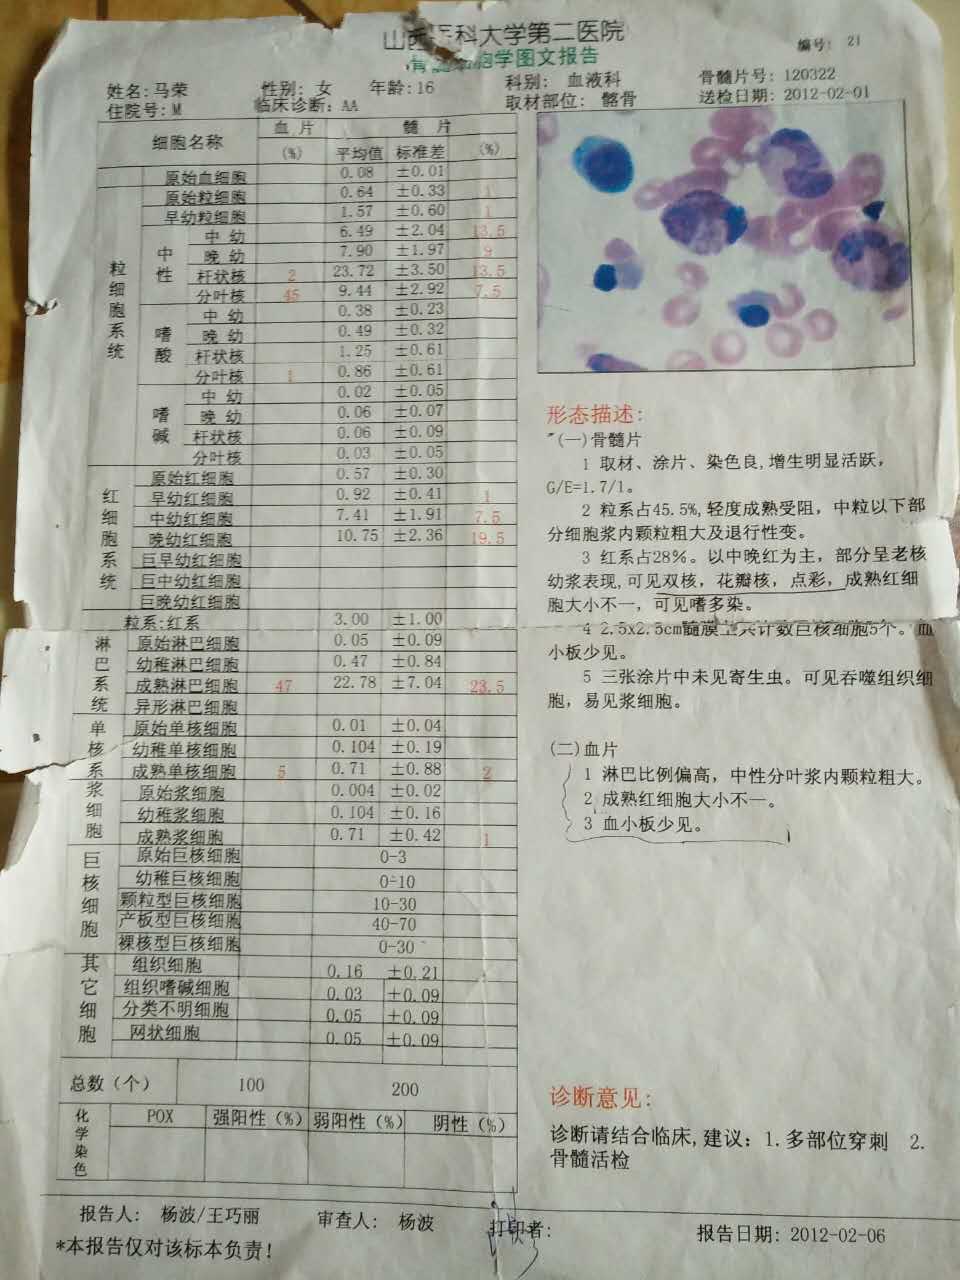 山西医科大学第二医院
骨髓细胞学图文报告
编号: 21
姓名: 马荣 性别: 女 年龄: 16 科别: 血液科 骨髓片号: 120322
住院号: M 临床诊断: AA 取材部位: 髂骨 送检日期: 2012-02-01
细胞名称 血片 髓片
(%) 平均值 标准差 (%)
原始血细胞 0.08 ±0.01
粒细胞系统
原始粒细胞 0.64 ±0.33 1
早幼粒细胞 1.57 ±0.60 1
中性
中幼 6.49 ±2.04 13.5
晚幼 7.90 ±1.97 9
杆状核 2 23.72 ±3.50 13.5
分叶核 45 9.44 ±2.92 7.5
嗜酸
中幼 0.38 ±0.23
晚幼 0.49 ±0.32
杆状核 1.25 ±0.61
分叶核 1 0.86 ±0.61
嗜碱
中幼 0.02 ±0.05
晚幼 0.06 ±0.07
杆状核 0.06 ±0.09
分叶核 0.03 ±0.05
红细胞系统
原始红细胞 0.57 ±0.30
早幼红细胞 0.92 ±0.41 1
中幼红细胞 7.41 ±1.91 7.5
晚幼红细胞 10.75 ±2.36 19.5
巨早幼红细胞
巨中幼红细胞
巨晚幼红细胞
粒系:红系 3.00 ±1.00
淋巴系统
原始淋巴细胞 0.05 ±0.09
幼稚淋巴细胞 0.47 ±0.84
成熟淋巴细胞 47 22.78 ±7.04 23.5
异形淋巴细胞
单核系
原始单核细胞 0.01 ±0.04
幼稚单核细胞 0.104 ±0.19
成熟单核细胞 5 0.71 ±0.88 2
浆细胞
原始浆细胞 0.004 ±0.02
幼稚浆细胞 0.104 ±0.16
成熟浆细胞 0.71 ±0.42 1
巨核细胞
原始巨核细胞 0-3
幼稚巨核细胞 0-10
颗粒型巨核细胞 10-30
产板型巨核细胞 40-70
裸核型巨核细胞 0-30
其它细胞
组织细胞 0.16 ±0.21
组织嗜碱细胞 0.03 ±0.09
分类不明细胞 0.05 ±0.09
网状细胞 0.05 ±0.09
总数(个) 100 200
化学染色
POX 强阳性(%) 弱阳性(%) 阴性(%)
形态描述:
(一)骨髓片
1 取材、涂片、染色良,增生明显活跃,
G/E=1.7/1。
2 粒系占45.5%,轻度成熟受阻，中粒以下部
分细胞浆内颗粒粗大及退行性变。
3 红系占28%。以中晚红为主，部分呈老核
幼浆表现,可见双核，花瓣核，点彩，成熟红细
胞大小不一，可见嗜多染。
4 2.5x2.5cm髓膜上共计数巨核细胞5个。血
小板少见。
5 三张涂片中未见寄生虫。可见吞噬组织细
胞，易见浆细胞。
(二)血片
1 淋巴比例偏高，中性分叶浆内颗粒粗大。
2 成熟红细胞大小不一。
3 血小板少见。
诊断意见:
诊断请结合临床,建议: 1.多部位穿刺 2.
骨髓活检
报告人: 杨波/王巧丽 审查人: 杨波 打印者: 报告日期: 2012-02-06
*本报告仅对该标本负责!